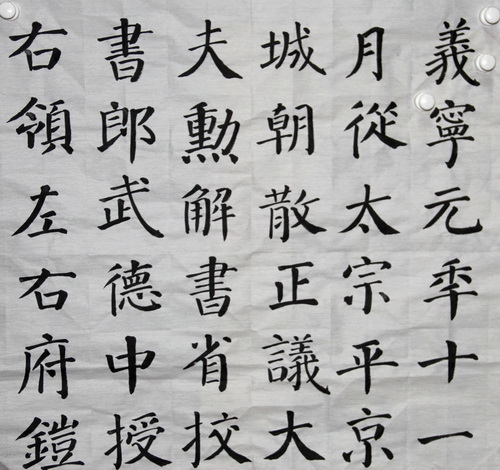 義寧元年十一
月從太宗平京
城朝散正議大
夫勳解書省挍
書郎武德中授
右領左右府鎧